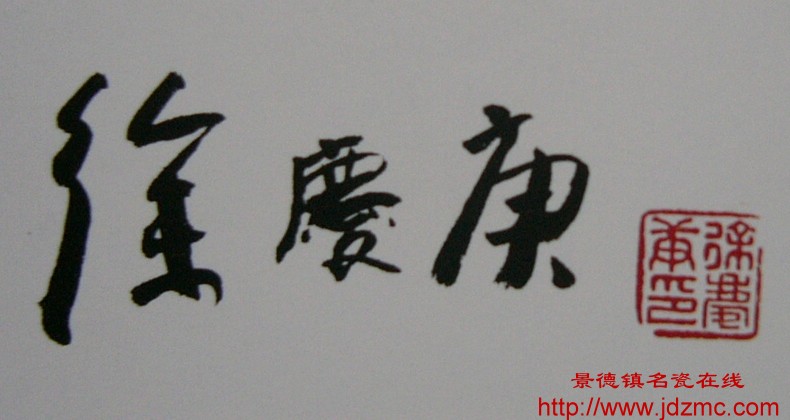 徐慶庚
徐慶
庚印
景德镇名瓷在线
http://www.jdzmc.com